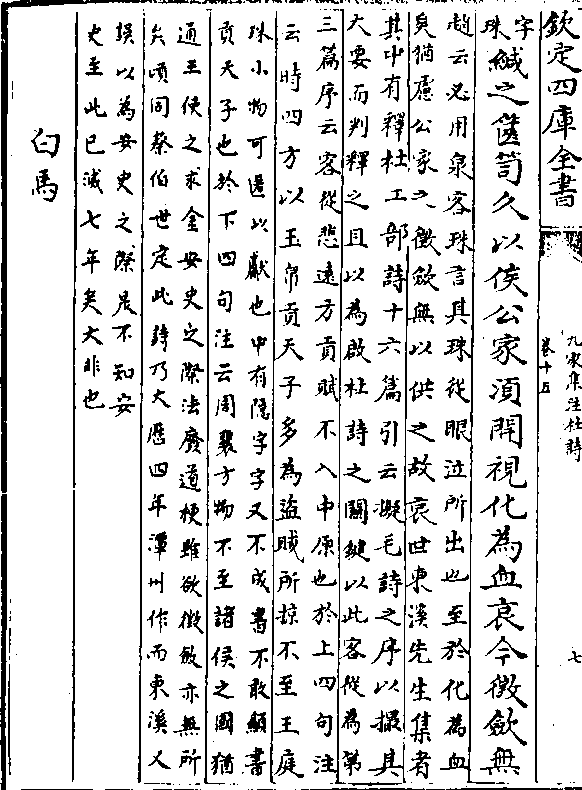 欽定四庫全書
九家集注杜詩
卷十五
七
字
珠
緘之篋笥久以俟公家湏開視化為血哀今徵歛無
趙云必用泉客珠言其珠從眼泣所出也至於化為血
矣猶慮公家之徵歛無以供之故哀世東溪先生集者
其中有釋杜工部詩十六篇引云凝毛詩之序以撮其
大要而判釋之且以為啟杜詩之關鍵以此客從為第
三篇序云客從悲遠方貢賦不入中原也於上四句注
云時四方以玉帛貢天子多為盜賊所掠不至王庭
珠小物可匿以獻也中有隱字字又不成書不敢顯書
貢天子也於下四句注云周衰方物不至諸侯之國猶
通王使之求金安史之際法廢道梗雖欲徵歛亦無所
矣頃同蔡伯世定此詩乃大歴四年潭州作而東溪又
誤以為安史之際是不知安
史至此已滅七年矣大非也
白馬